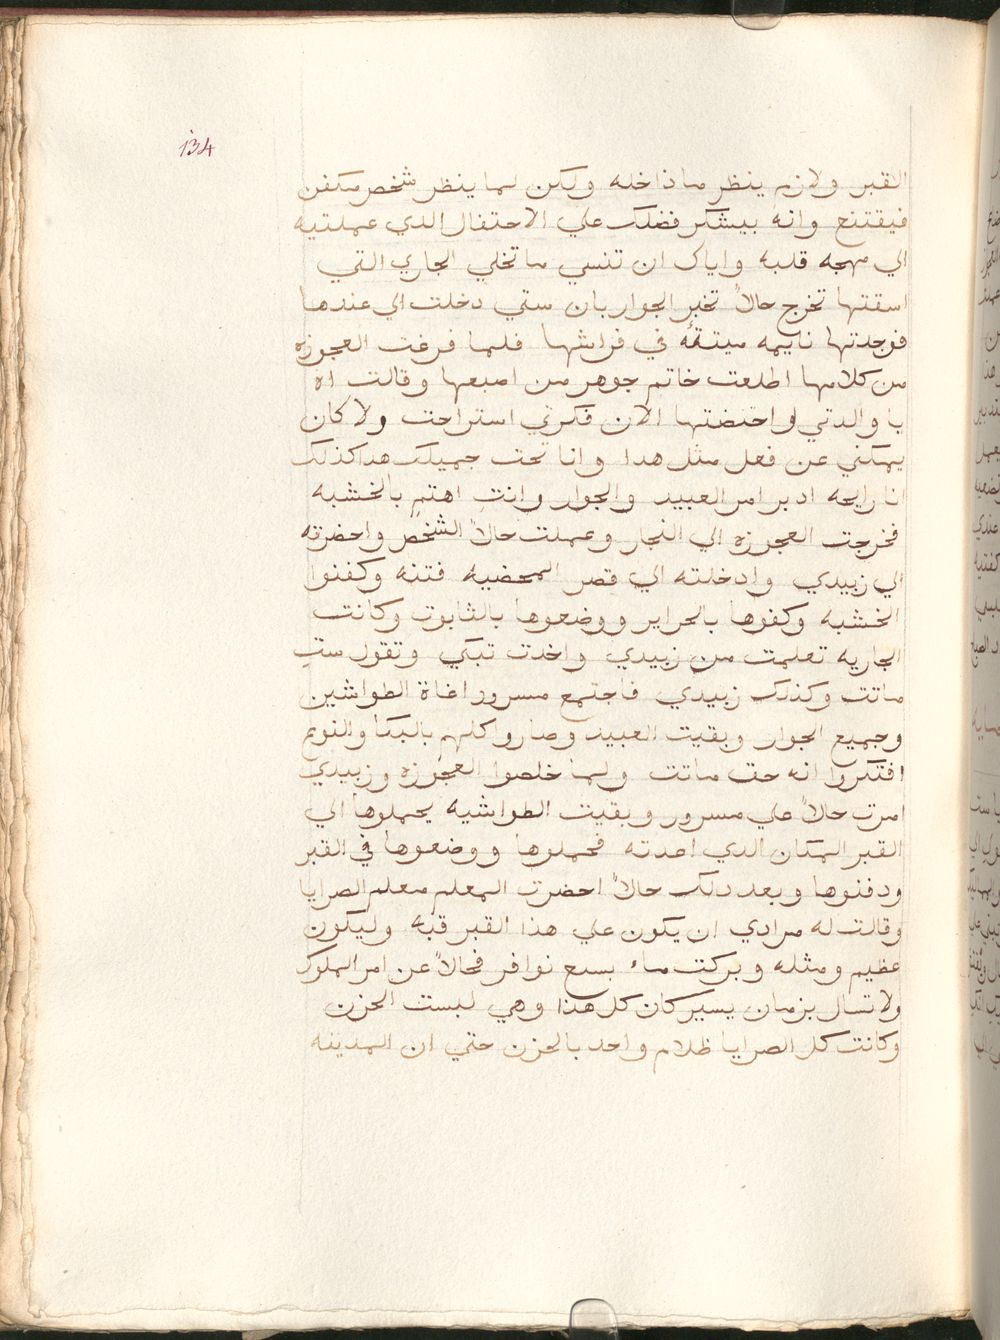 134
القبر ولازم ينظر ماذاخله ولكن لما ينظر شخص مكفن
فيقتنع وانه بيشكر فضلك علي الاحتفال الدي عملتيه
الي مهجه قلبه واياك ان تنسي ما تخلي الجاري التي
اسقتها تخرج حالاً تخبر الجوار بان ستي دخلت الي عندها
فوجدتها نايمه ميتة في فراشها فلما فرغت العجوزه
من كلامها اطلعت خاتم جوهر من اصبعها وقالت اه
يا والدتي واحتضتها الان فكرتي استراحت ولا كان
يمكني عن فعل مثل هدا وانا تحت جميلك هدا كذلك
انا رايحه ادبر امر العبيد والجوار وانتِ اهتم بالخشبه
فخرجت العجوزه الي النجار وعملت حالاً الشخص واحضرته
الي زبيدي وادخلته الي قصر المحضيه فتنه وكفنوا
الخشبه وكفوها بالحراير ووضعوها بالثابوت وكانت
الجاريه تعلمت من زبيدي واخدت تبكي وتقول ستِ
ماتت وكذلك زبيدي فاجتمع مسرور اغاة الطواشين
وجميع الجوار وبقيت العبيد وصاروا كلهم بالبكا والنوح
افتكروا انه حق ماتت ولما خلصوا العجوزه وزبيدي
امرت حالاً علي مسرور وبقيت الطواشيه يحملوها الي
القبر المكان الدي اعدته فحملوها ووضعوها في القبر
ودفنوها وبعد دلك حالاً احضرت المعلم معلم الصرايا
وقالت له مرادي ان يكون علي هذا القبر قبه وليكون
عظيم ومثله وبركت ماء بسبع نوافر فحالاً عن امر الملوك
ولا تسال بزمان يسير كان كل هذا وهي لبست الحزن
وكانت كل الصرايا ظلام واحد بالحزن حتي ان المدينه